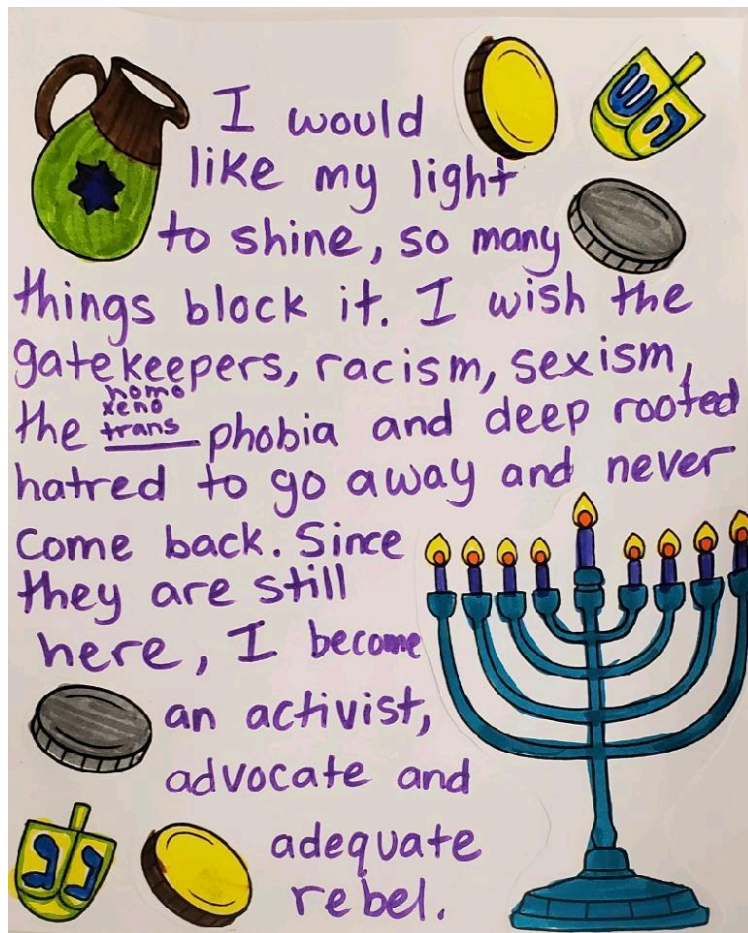 I would
like my light
to shine, so many
things block it. I wish the
gatekeepers, racism, sexism,
homo
xeno
the trans phobia and deep rooted
hatred to go away and never
come back. Since
they are still
here, I become
an activist,
advocate and
adequate
rebel.
ש ה
נ נ